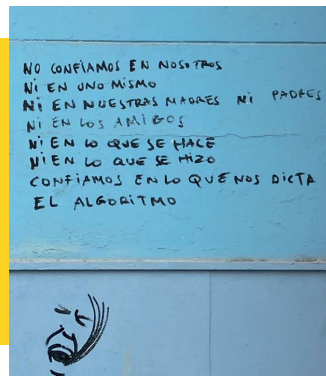 NO CONFIAMOS EN NOSOTROS
NI EN UNO MISMO
NI EN NUESTRAS MADRES NI PADRES
NI EN LOS AMIGOS
NI EN LO QUE SE HACE
NI EN LO QUE SE HIZO
CONFIAMOS EN LO QUE NOS DICTA
EL ALGORITMO